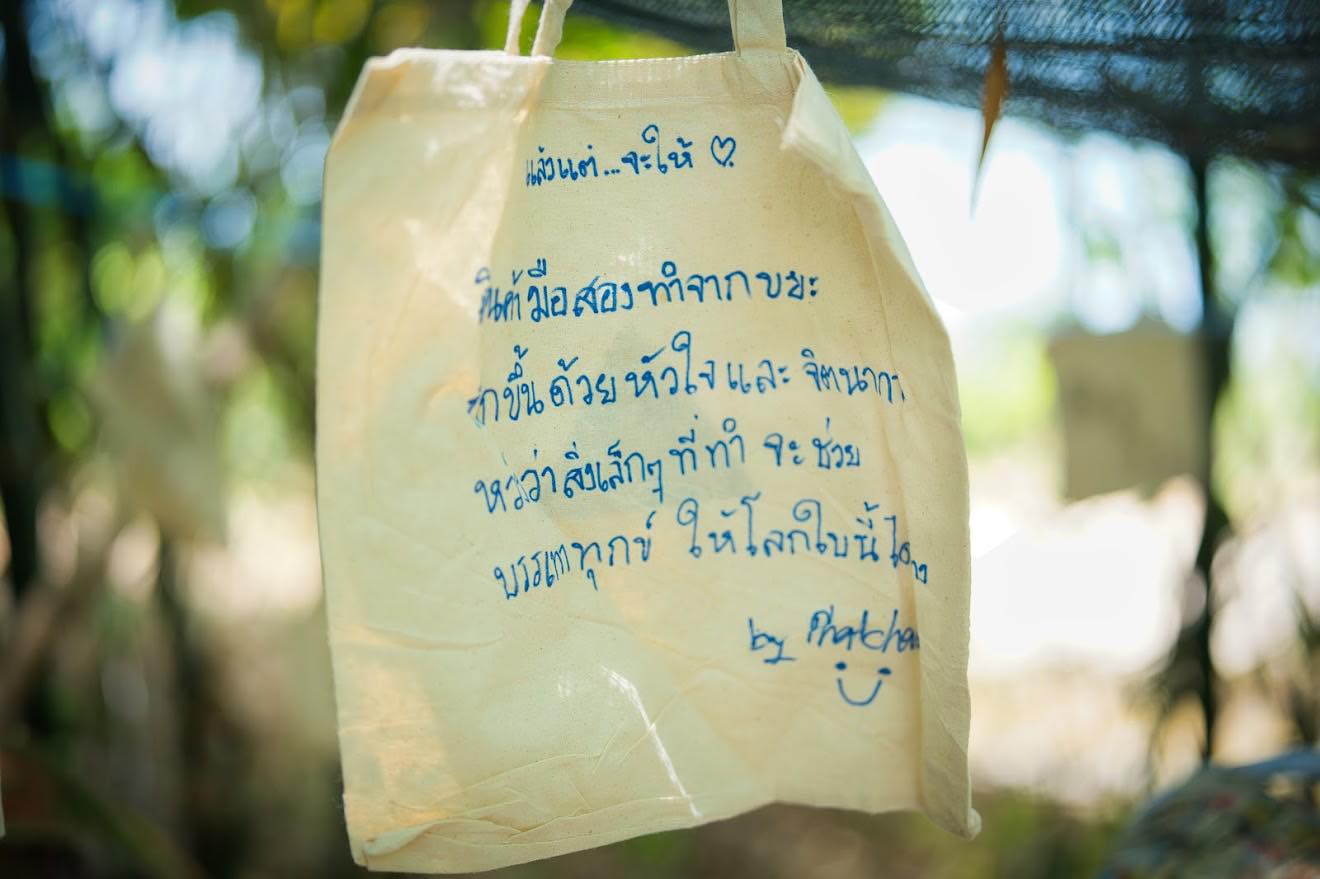 แล้วแต่...จะให้ ♡
สินค้ามือสองทำจากขยะ
ขึ้นด้วยหัวใจและจิตนาการ
หวังว่าสิ่งเล็กๆที่ทำ จะช่วย
บรรเทาทุกข์ ให้โลกใบนี้ได้บ้าง
by